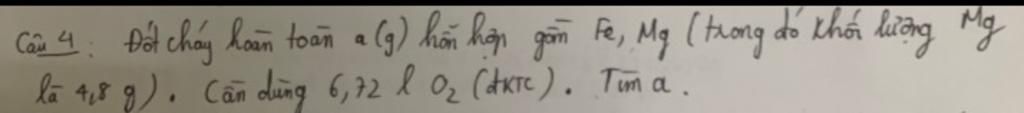 Câu 4: Đốt cháy hoàn toàn a (g) hỗn hợp gồm Fe, Mg (trong đó khối lượng Mg
là 4,8 g). Cần dùng 6,72 l O₂ (đKTC). Tìm a.